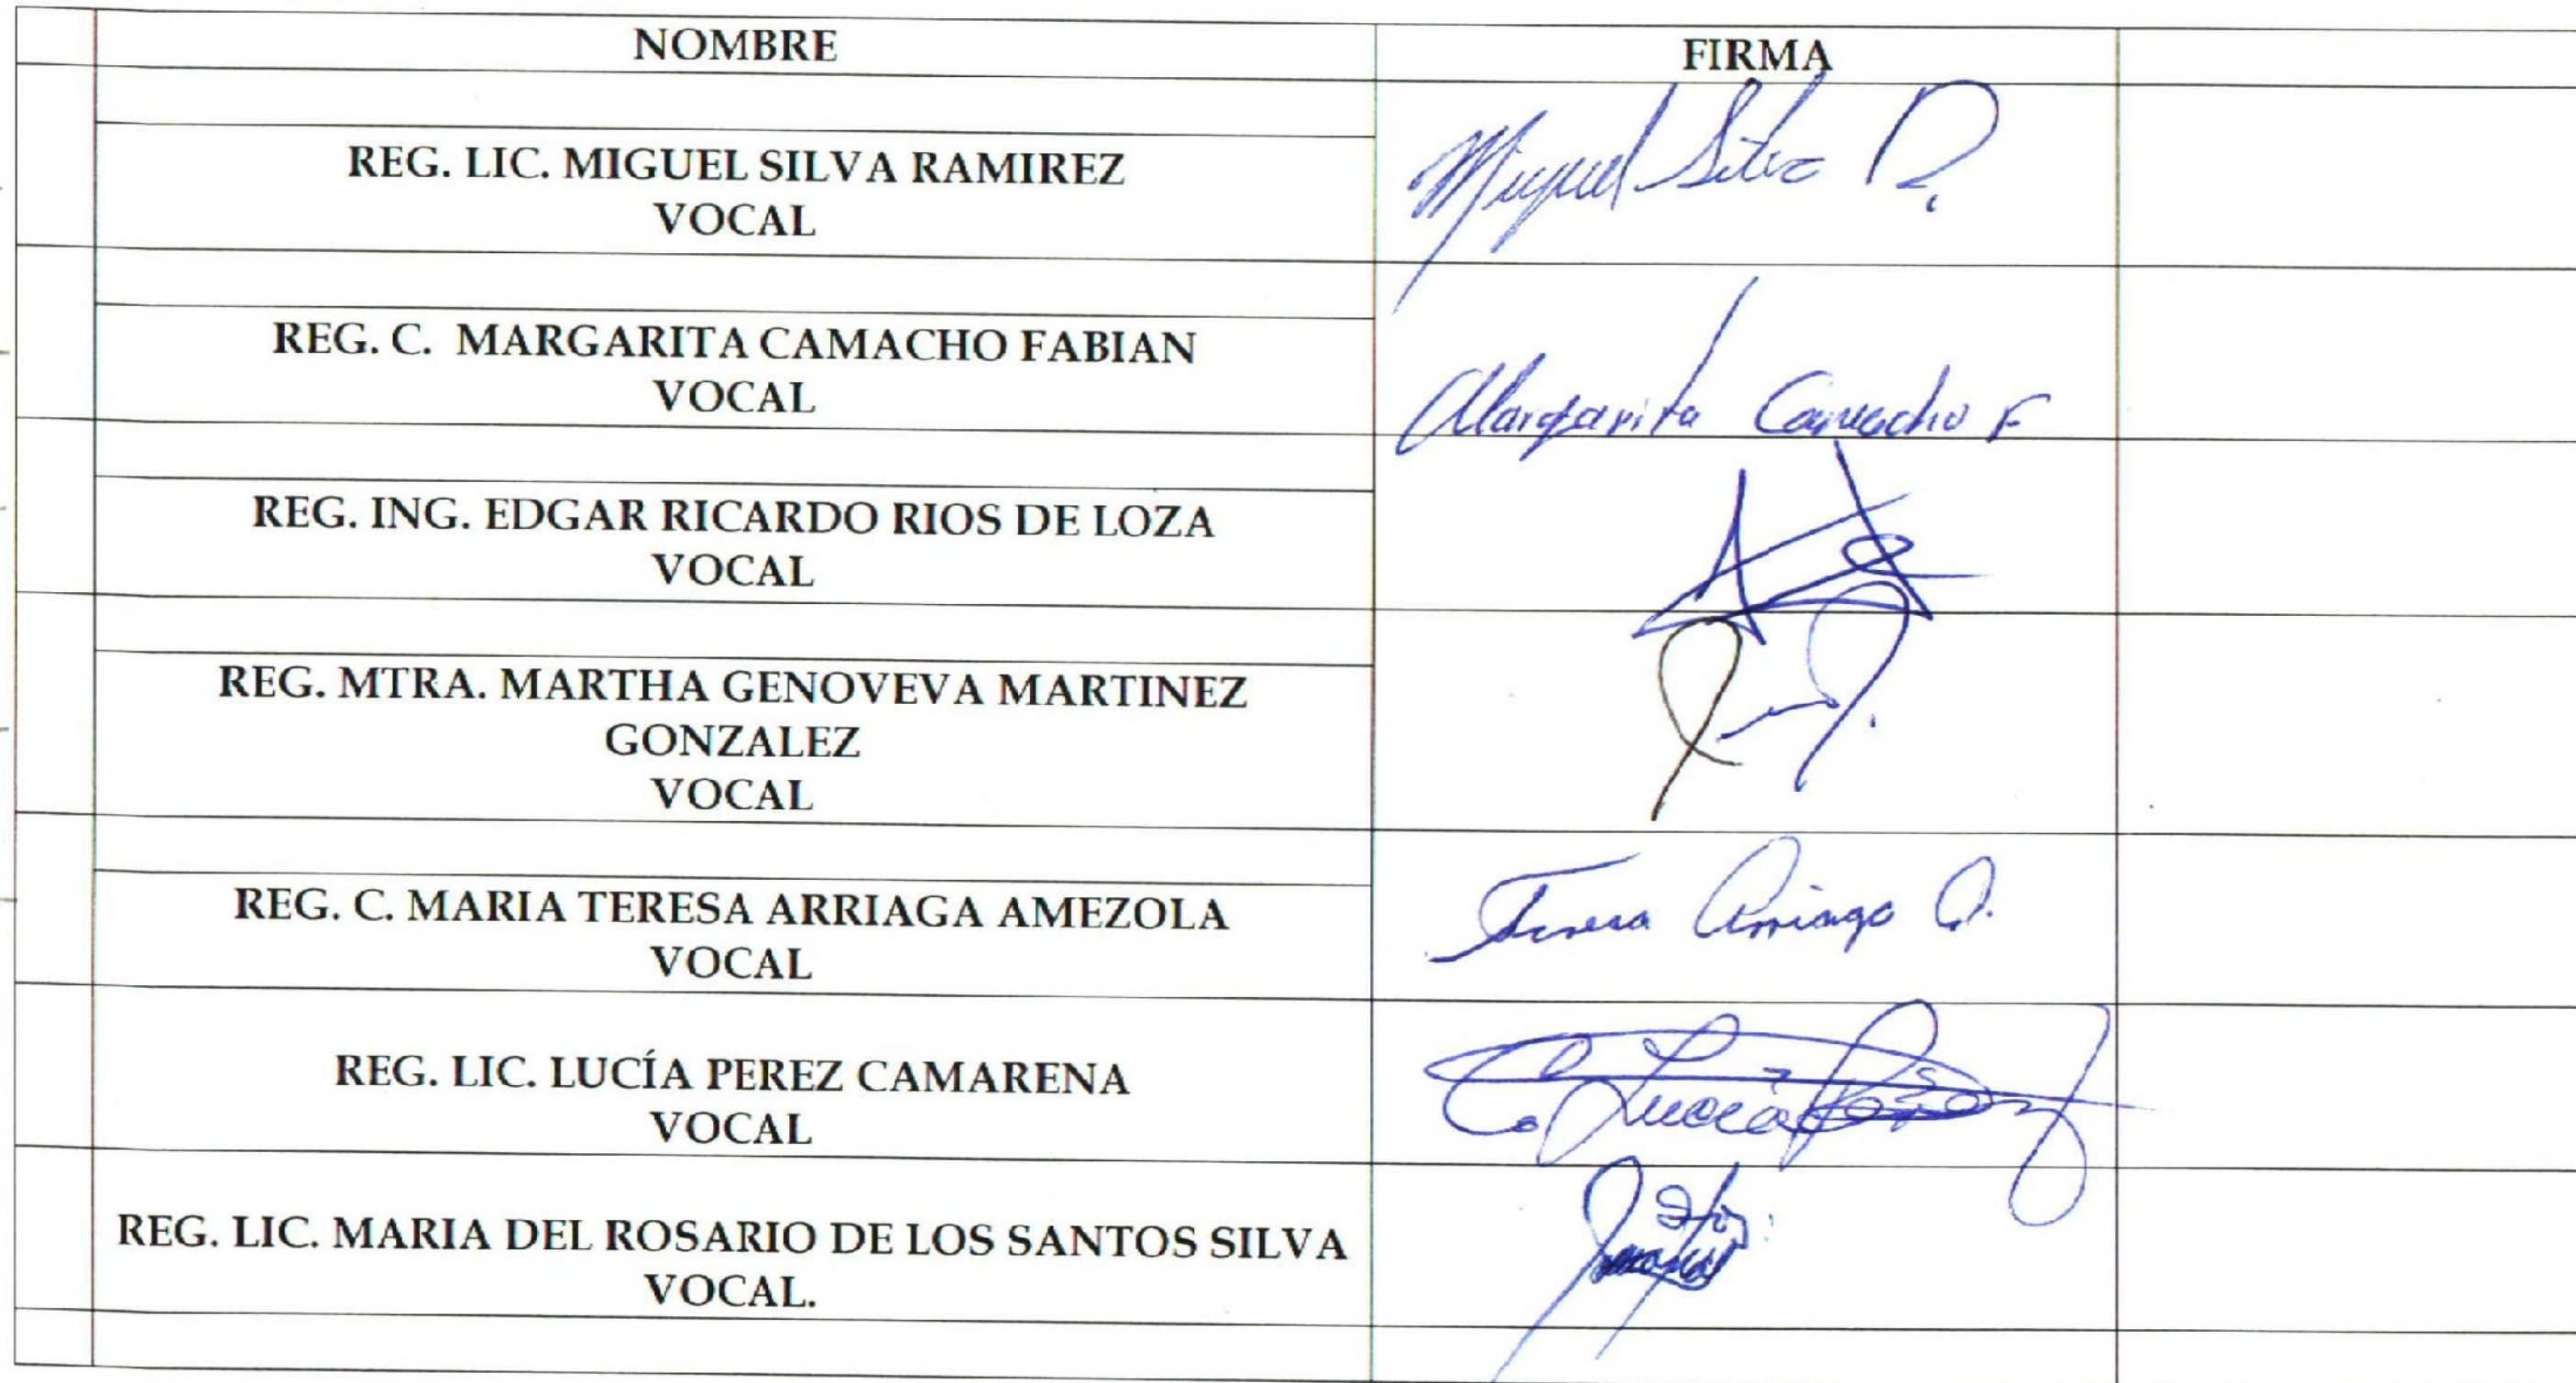 NOMBRE
FIRMA
REG. LIC. MIGUEL SILVA RAMIREZ
VOCAL
Miguel Silva R.
REG. C. MARGARITA CAMACHO FABIAN
VOCAL
Margarita Camacho F
REG. ING. EDGAR RICARDO RIOS DE LOZA
VOCAL
REG. MTRA. MARTHA GENOVEVA MARTINEZ
GONZALEZ
VOCAL
REG. C. MARIA TERESA ARRIAGA AMEZOLA
VOCAL
Teresa Arriaga A.
REG. LIC. LUCÍA PEREZ CAMARENA
VOCAL
Lucía Pérez
REG. LIC. MARIA DEL ROSARIO DE LOS SANTOS SILVA
VOCAL.